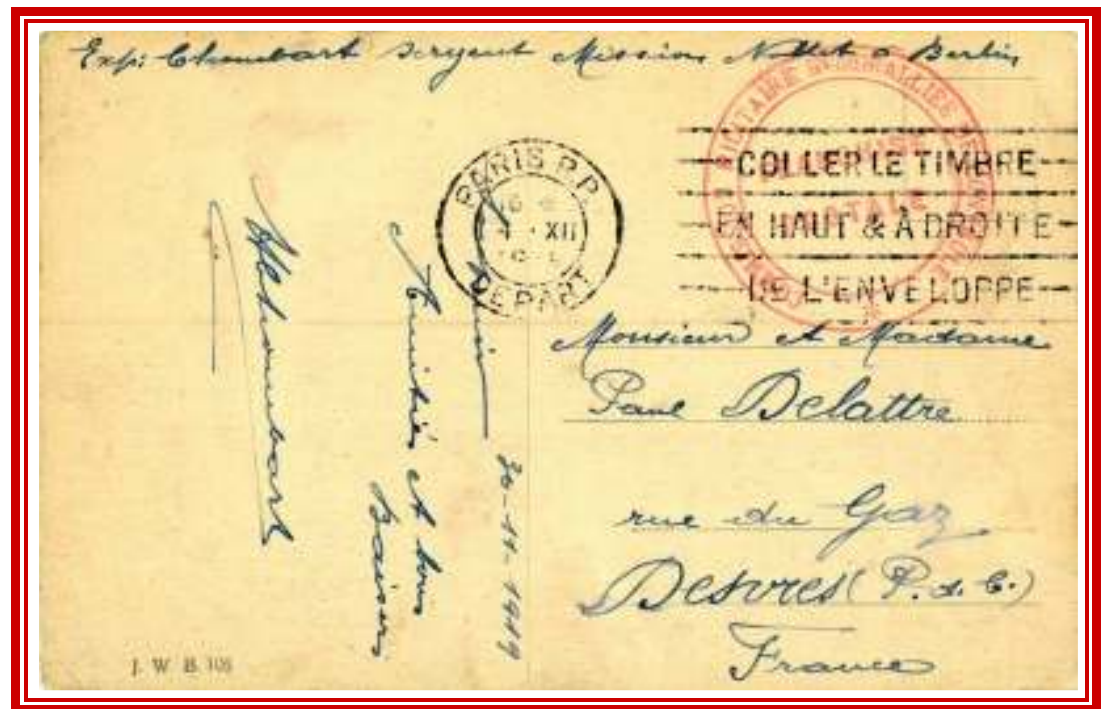 Exp: Chombart sergent Mission Nollet à Berlin
PARIS P.P.
XII
DEPART
COLLER LE TIMBRE
EN HAUT & À DROITE
DE L'ENVELOPPE
MILITAIRE INTERALLIÉE DE CONTROLE
POSTALE
Monsieur et Madame
Paul Delattre
rue du Gaz
Desvres (P. d. C.)
France
30-11-1919
Amitiés et bons
Baisers
Chombart
J. W. B. 108